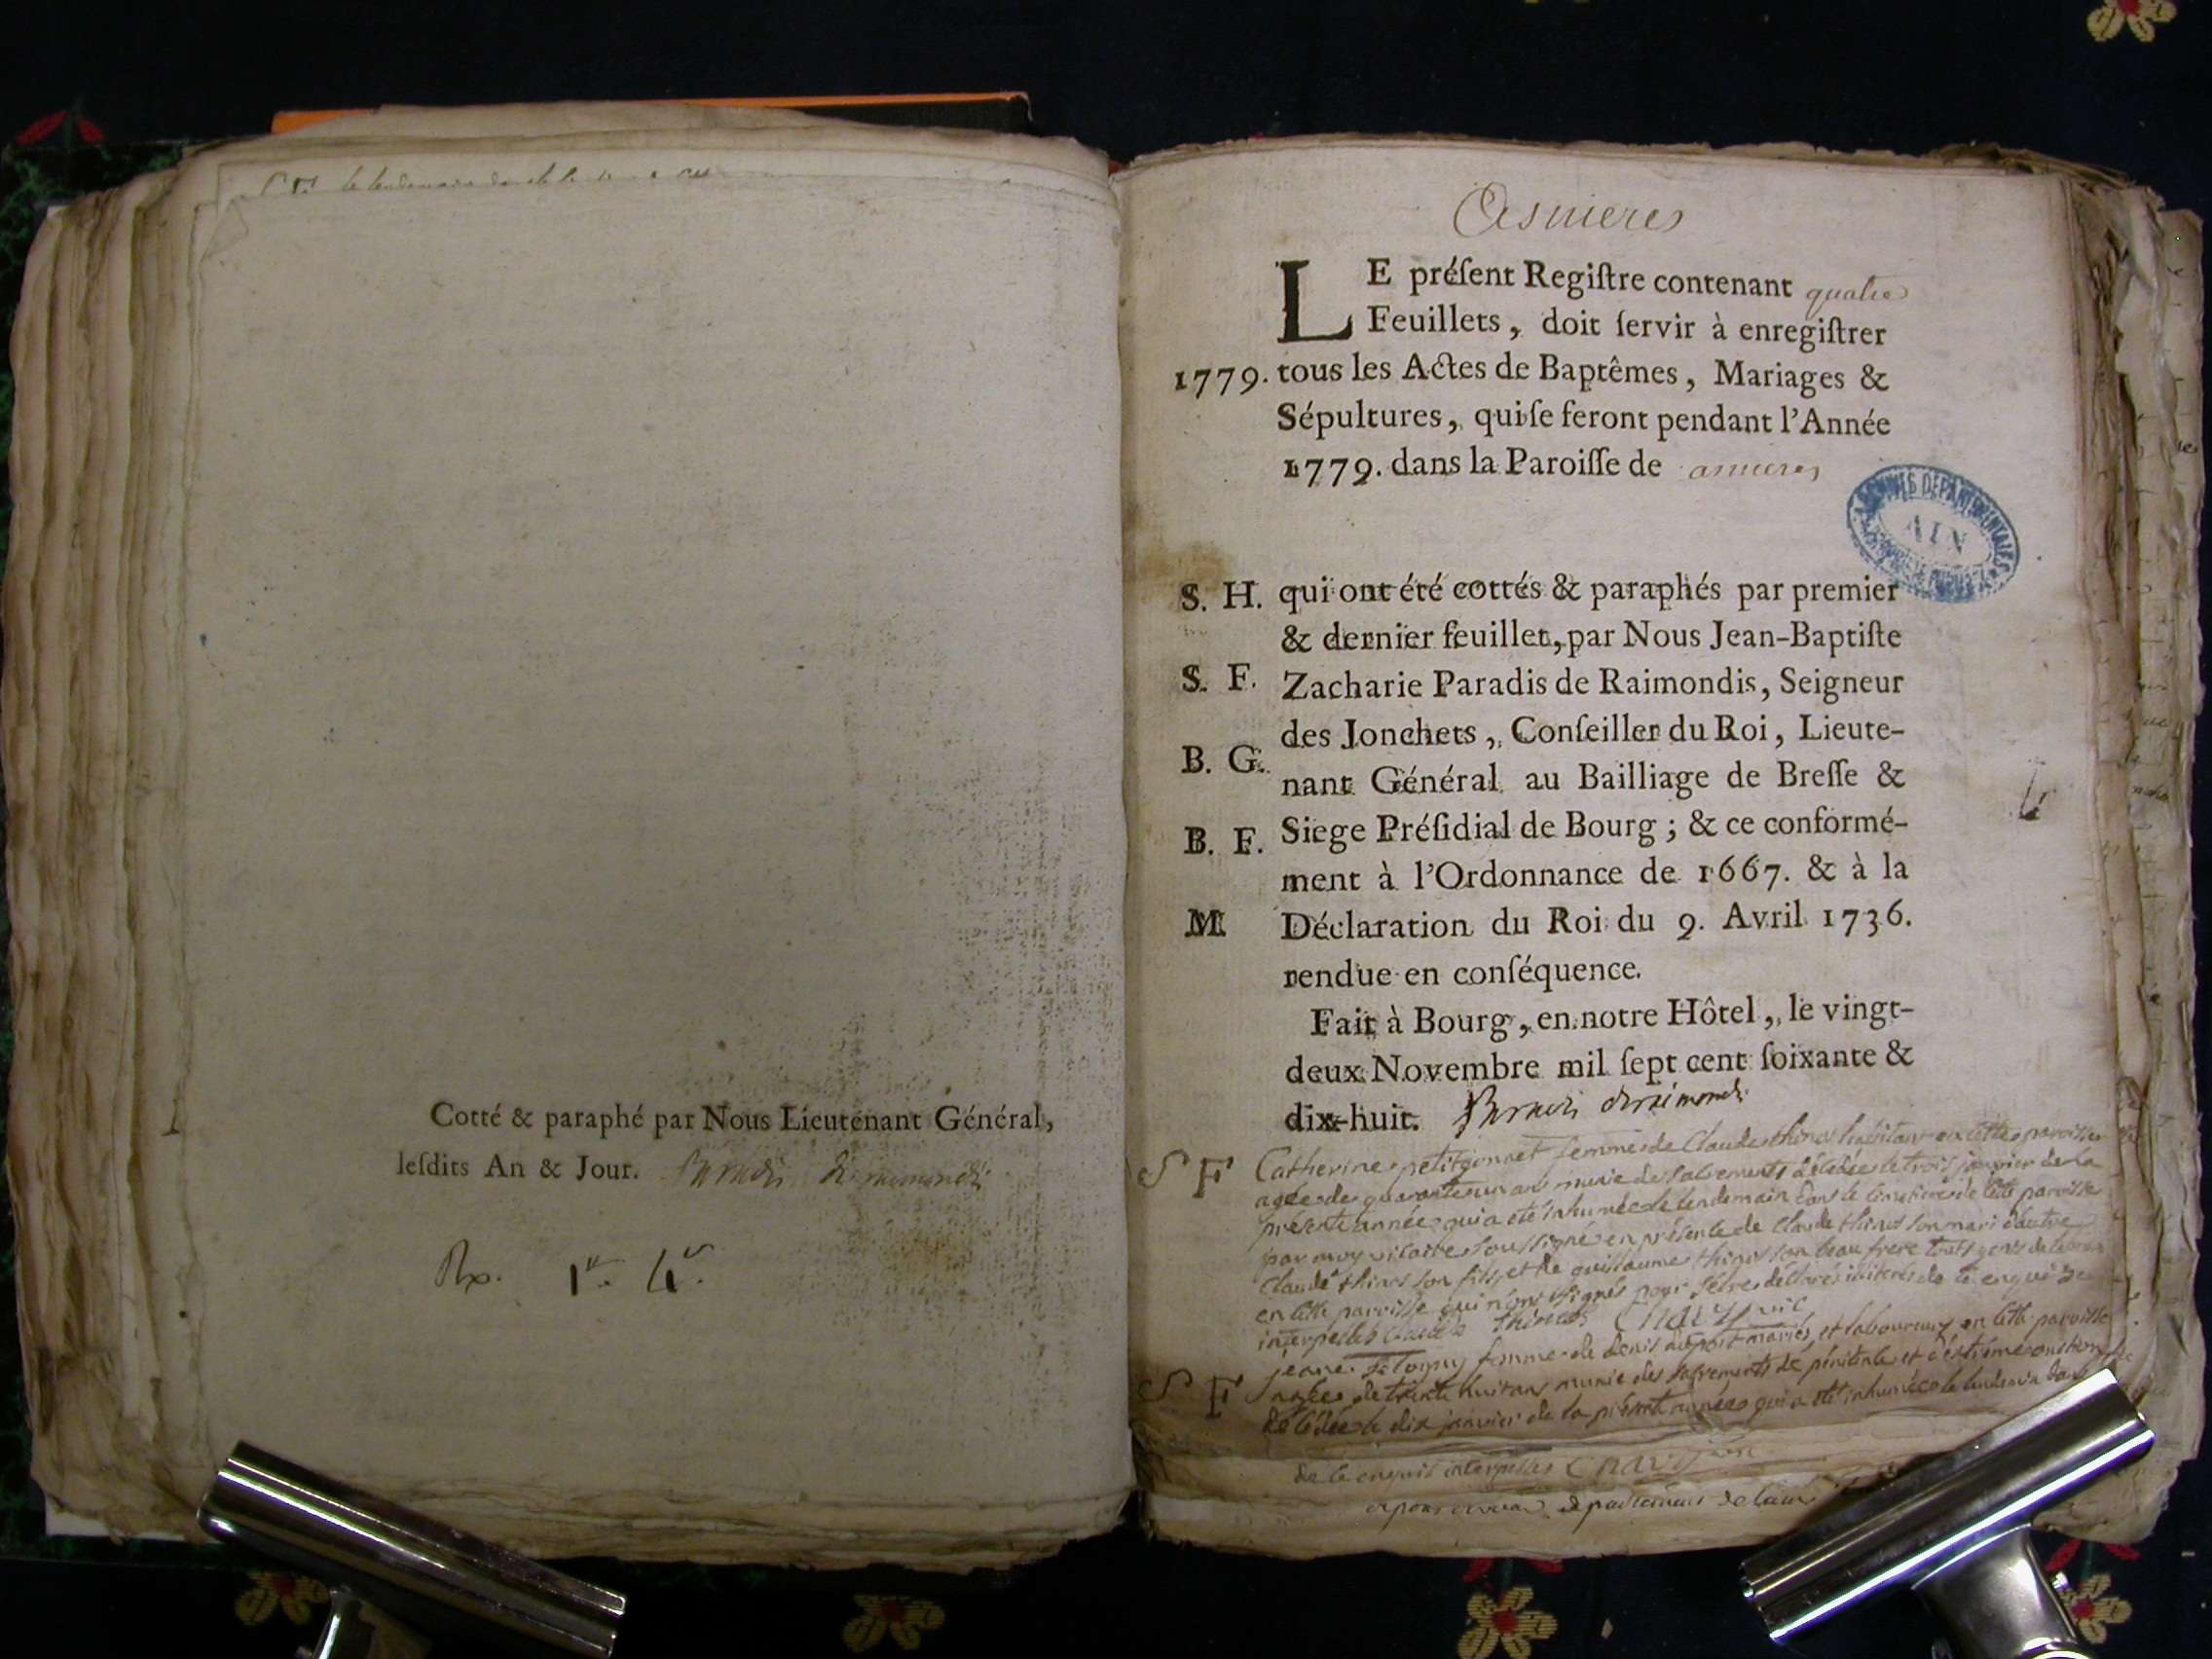 Cotté & paraphé par Nous Lieutenant Général,
leſdits An & Jour.
Asnieres
LE préſent Regiſtre contenant quatre
Feuillets, doit ſervir à enregiſtrer
1779. tous les Actes de Baptêmes, Mariages &
Sépultures, qui ſe feront pendant l'Année
1779. dans la Paroiſſe de asnieres
ARCHIVES DÉPARTEMENTALES
AIN
S. H. qui ont été cottés & paraphés par premier
& dernier feuillet, par Nous Jean-Baptiſte
S. F. Zacharie Paradis de Raimondis, Seigneur
des Jonchets, Conſeiller du Roi, Lieute-
B. G. nant Général au Bailliage de Breſſe &
B. F. Siege Préſidial de Bourg ; & ce conformé-
ment à l'Ordonnance de 1667. & à la
M Déclaration du Roi du 9. Avril 1736.
rendue en conſéquence.
Fait à Bourg, en notre Hôtel, le vingt-
deux Novembre mil ſept cent ſoixante &
dix-huit.
S F Catherine petitjonnet femme de Claude thinet habitant en cette paroisse
agée de quarante un ans munie des sacrements décédée le trois janvier de la
présente année qui a été inhumée le lendemain dans le cimetiere de cette paroisse
par moy vicaire soussigné en présence de Claude thinet son mari d'autre
Claude thinet son fils, et de guillaume thinet son beau frere touts
en cette paroisse qui n'ont signés pour s'être déclarés illiterés de ce enquis
interpellés
jeane femme de denis dupont mariés, et laboureurs en cette paroisse
S F agée de trente huit ans munie des sacrements de pénitence et d'extrême onction
décédée le dix janvier de la présente année qui a été inhumée le lendemain dans
de ce enquis interpellés